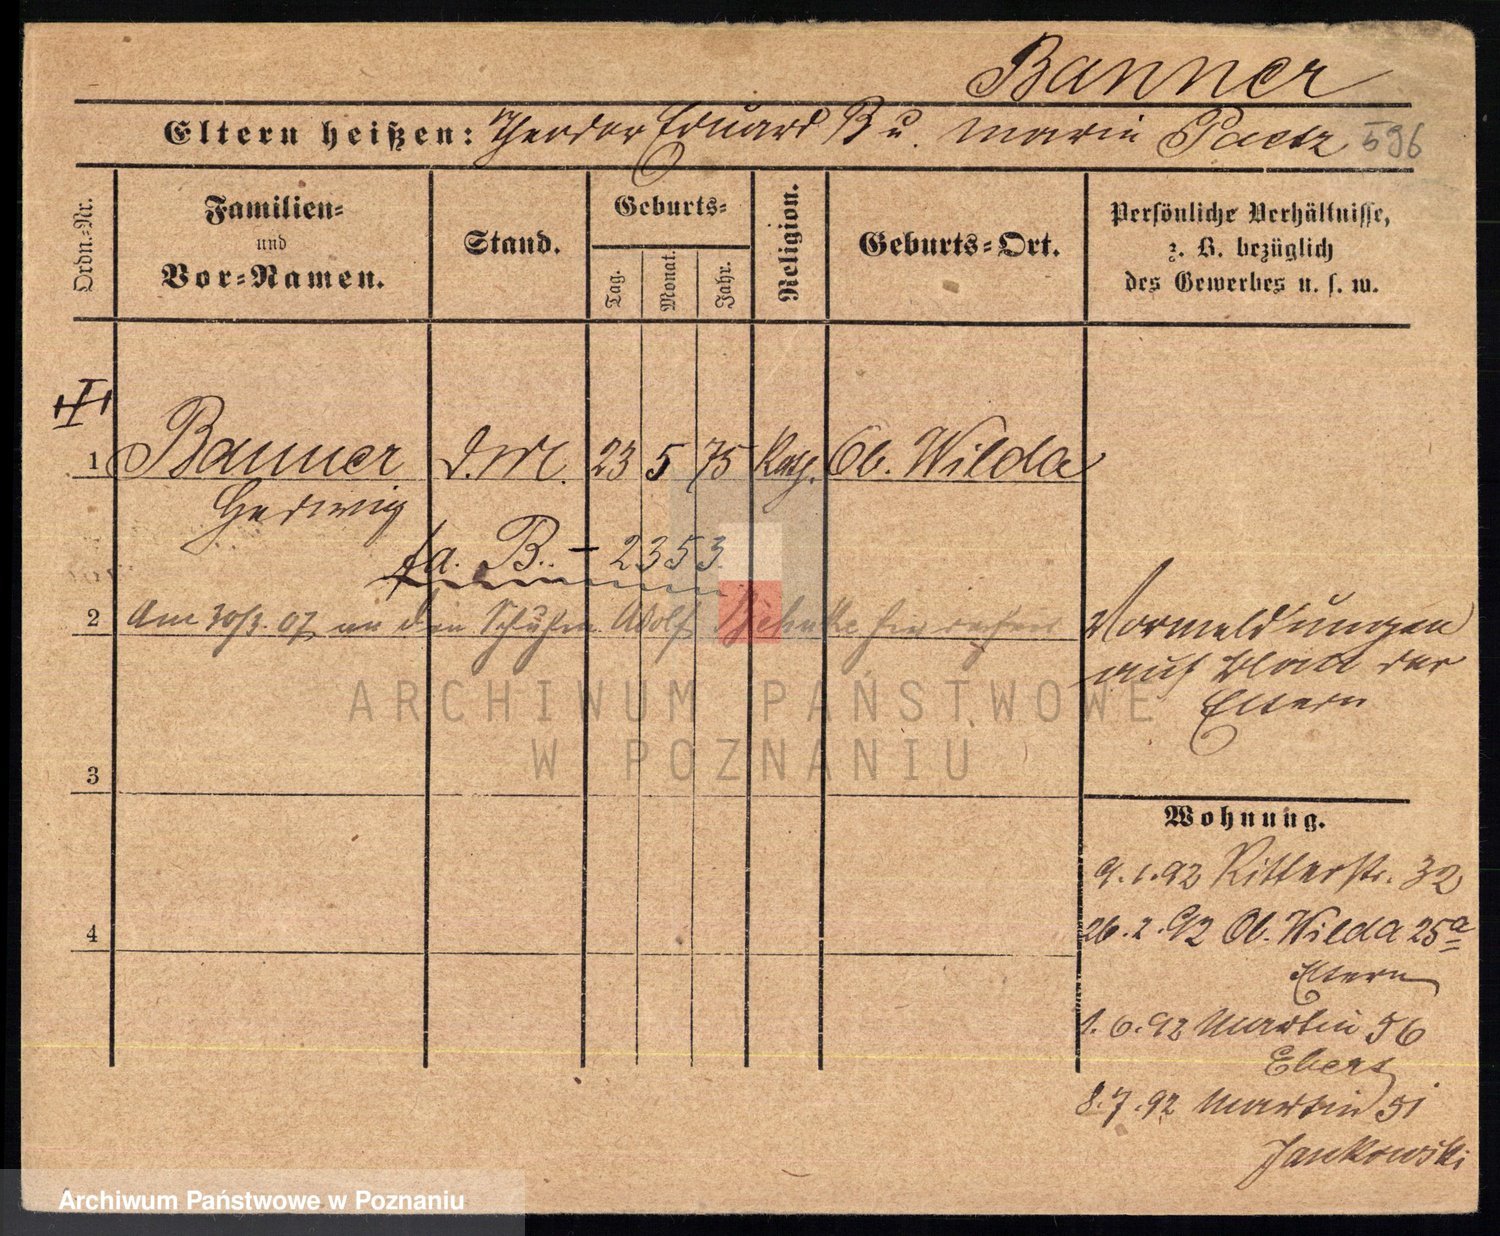 Banner
Eltern heißen: Theodor Eduard B u. Marie Paetz 596
Ordn.-Nr.
Familien-
und
Vor-Namen.
Stand.
Geburts-
Tag.
Monat.
Jahr.
Religion.
Geburts-Ort.
Persönliche Verhältnisse,
z. B. bezüglich
des Gewerbes u. s. w.
1 Banner d. M. 23 5 75 Kath. Ob. Wilda
Hedwig
fa. B. - 2353
2 Am 30/3. 07 an den Adolf
Vormeldungen
auf Blatt der
Eltern
ARCHIWUM PAŃSTWOWE
W POZNANIU
3
4
Wohnung.
9.1.92 Ritterstr. 32
26.2.92 Ob. Wilda 25a
Eltern
1.6.92 Martin 56
Ebert
8.7.92 Martin 51
Jankowski
Archiwum Państwowe w Poznaniu